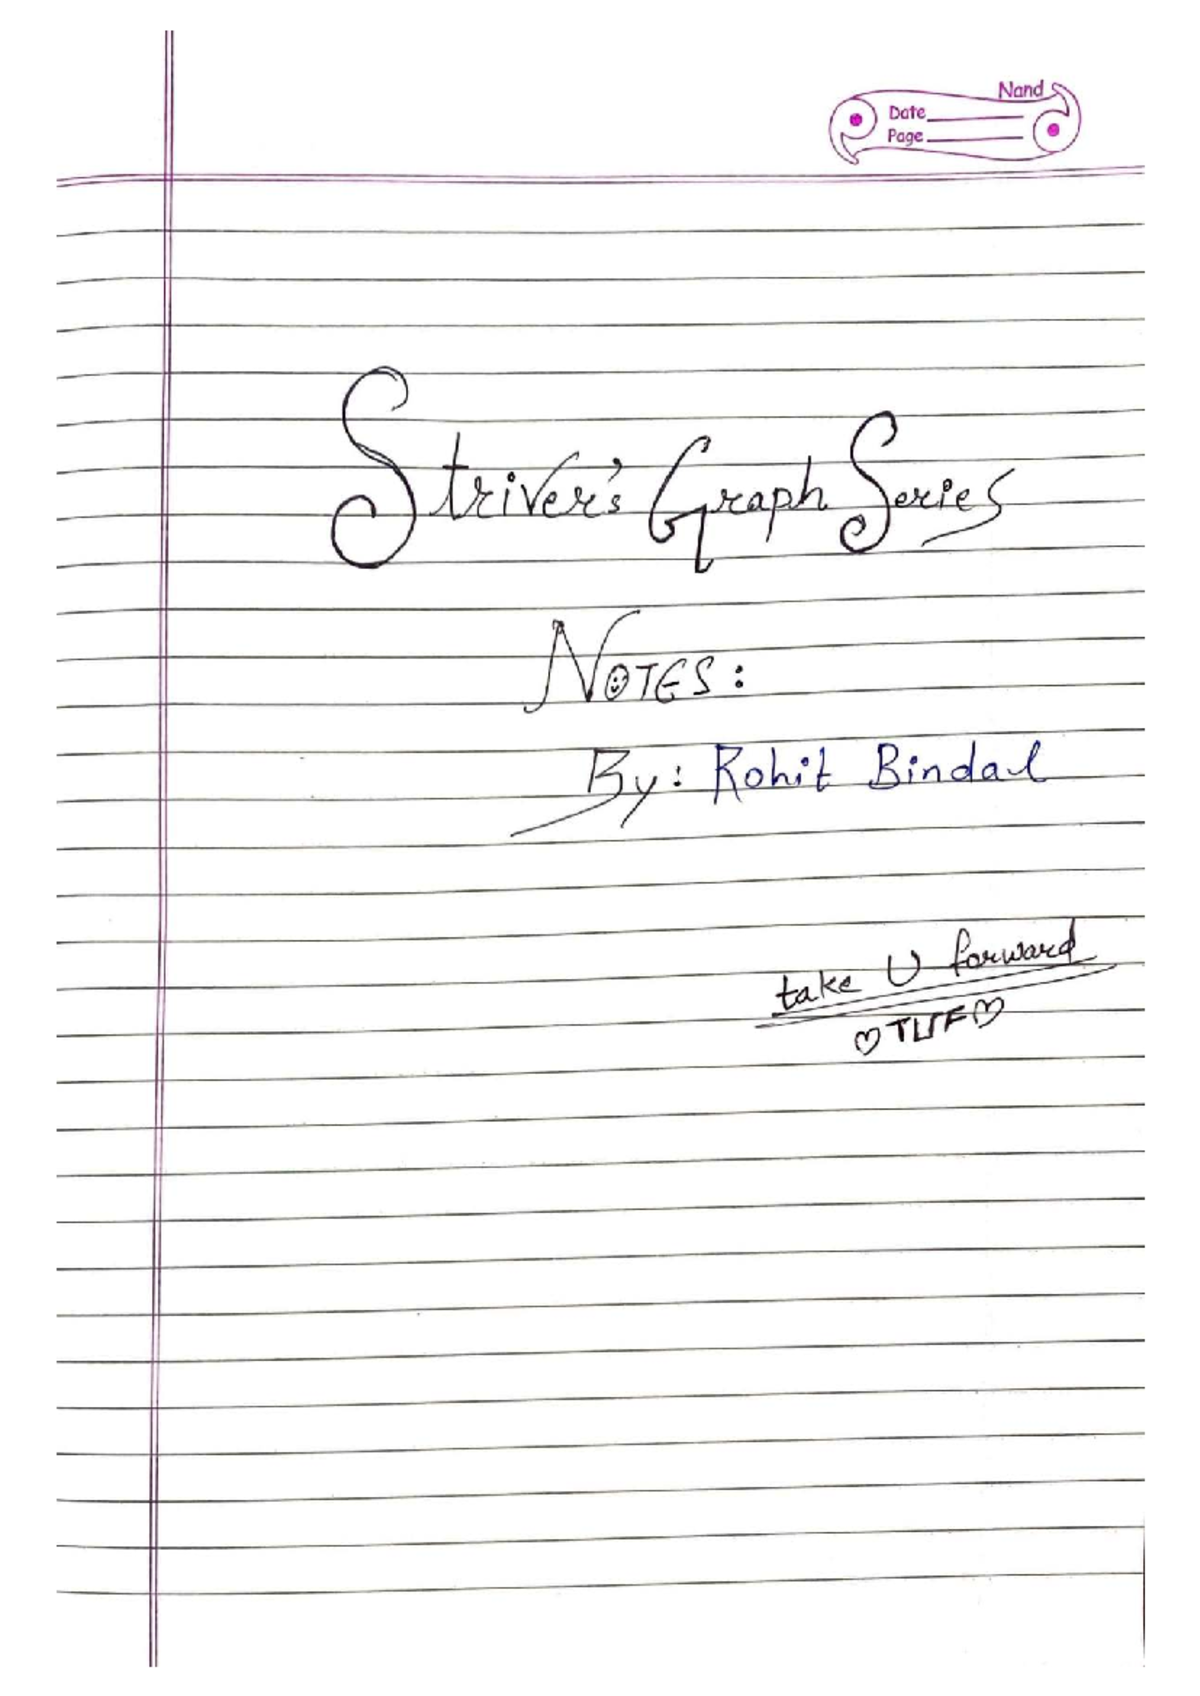 Nand
Date
Page
Striver's Graph Series
NOTES:
By: Rohit Bindal
take U forward
♡TUF♡